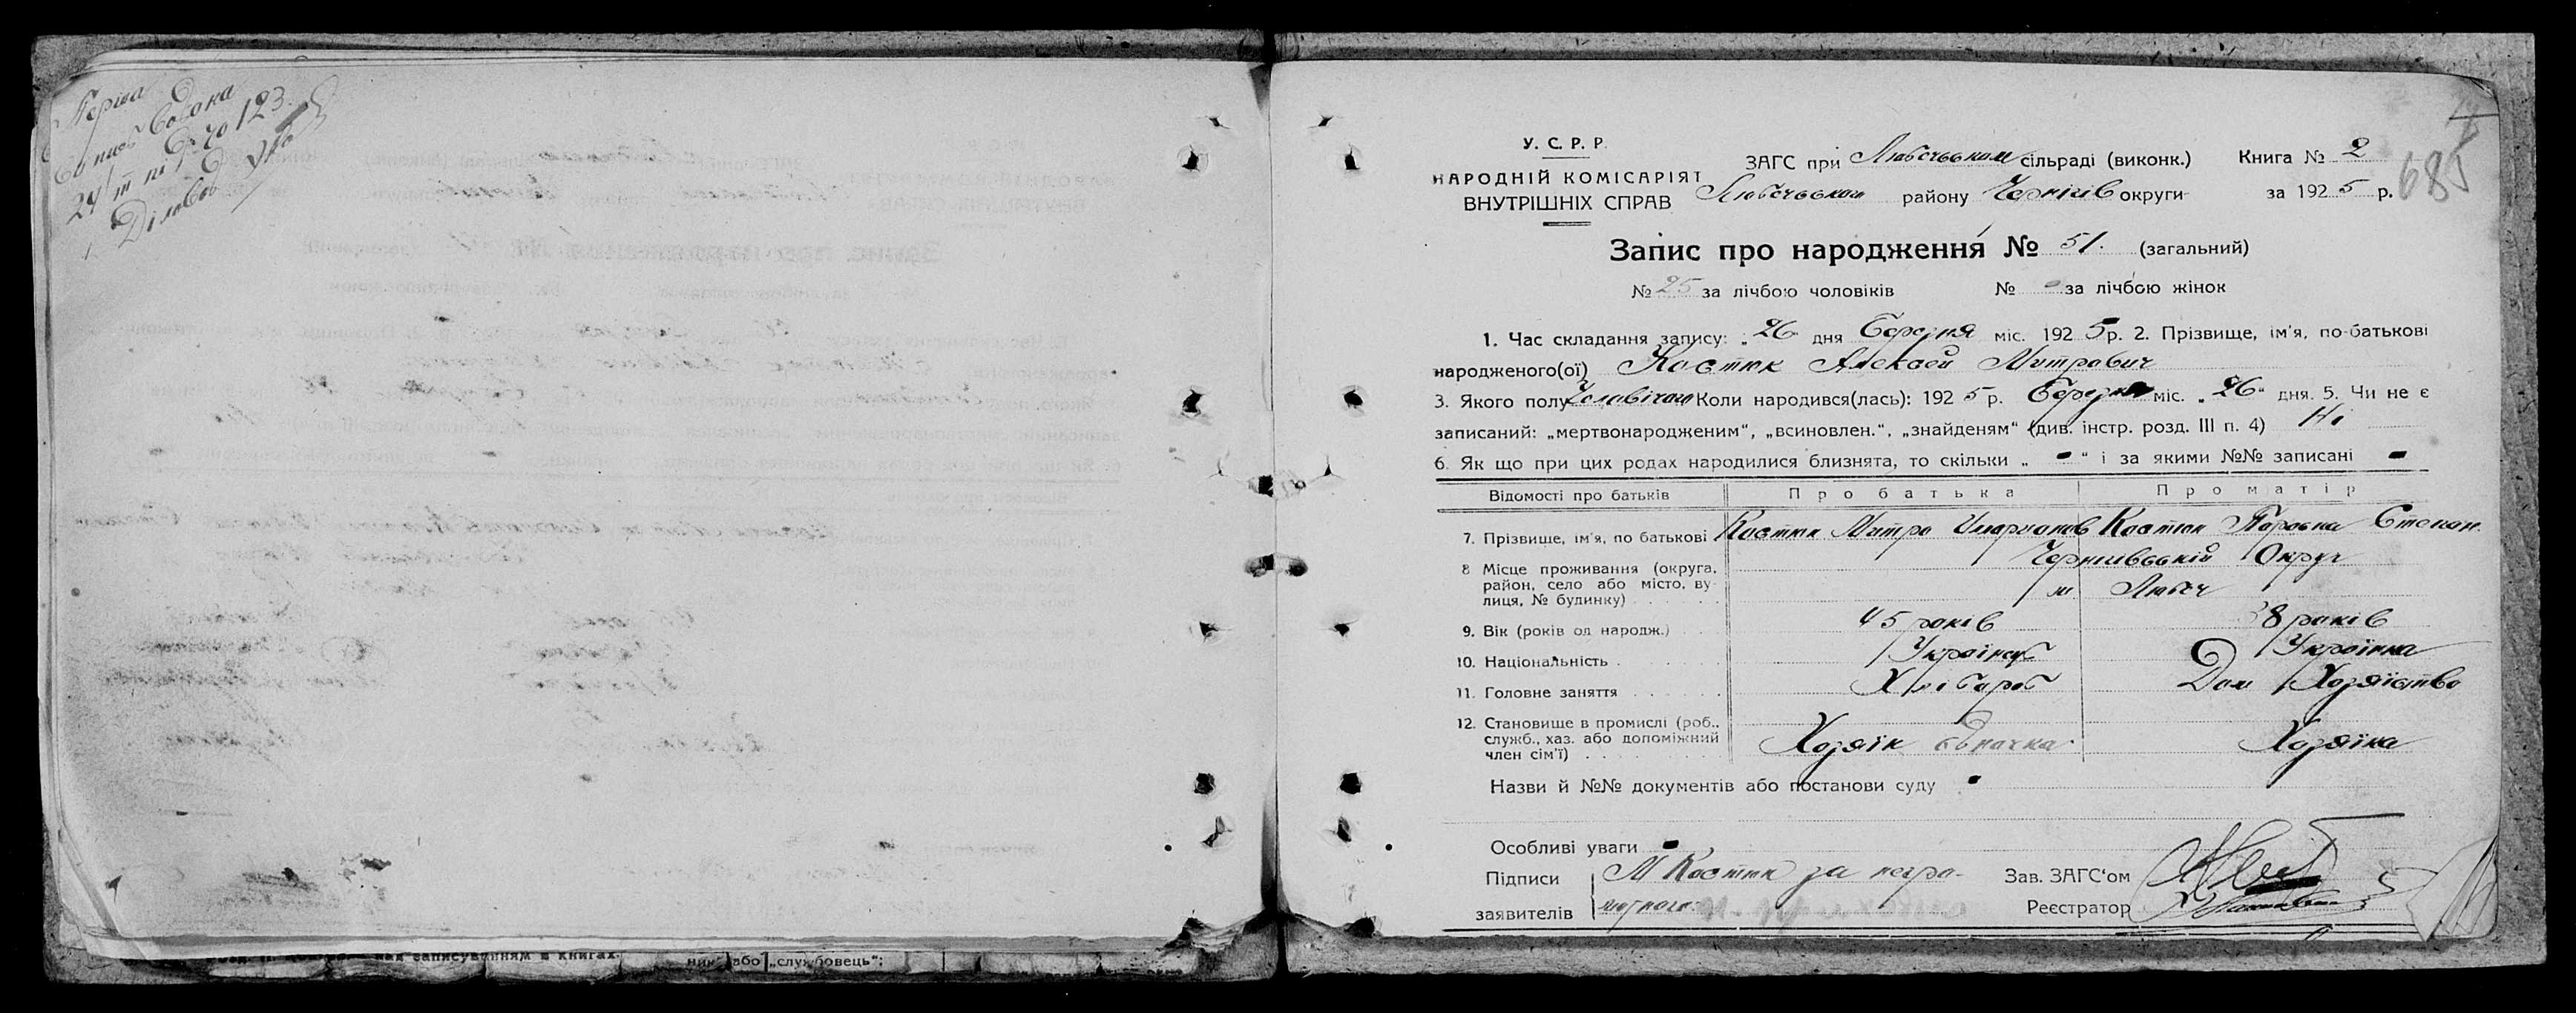 24/
123
У. С. Р. Р.
НАРОДНІЙ КОМІСАРІЯТ
ВНУТРІШНІХ СПРАВ
ЗАГС при Любечськом сільраді (виконк.) Книга № 2
Любечськом району Чернігів округи за 1925 р.
685
Запис про народження № 51. (загальний)
№ 25 за лічбою чоловіків № за лічбою жінок
1. Час складання запису: „26" дня Березня міс. 1925 р. 2. Прізвище, ім'я, по-батькові
народженого(ої) Костюк Алексей Митрович
3. Якого полу Чоловічого Коли народився(лась): 1925 р. Березня міс. „26" дня. 5. Чи не є
записаний: „мертвонародженим", „всиновлен.", „знайденям" (див. інстр. розд. III п. 4) Ні
6. Як що при цих родах народилися близнята, то скільки „ - " і за якими №№ записані -
Відомості про батьків Про батька Про матір
7. Прізвище, ім'я, по батькові Костюк Митро Костюк Степан.
8 Місце проживання (округа, район, село або місто, вулиця, № будинку) Чернигвський Округ
м. Любеч
9. Вік (років од народж.) 45 років 38 років
10. Національність Українец Українка
11. Головне заняття Хлібороб Дом Хозяїство
12. Становище в промислі (роб., служб., хаз. або допоміжний член сім'ї) Хозяїн Хозяїка
Назви й №№ документів або постанови суду -
Особливі уваги -
Підписи заявителів М Костюк за негра-
мотного
Зав. ЗАГС'ом
Реєстратор
над записуванням в книгах.
або „службовець":